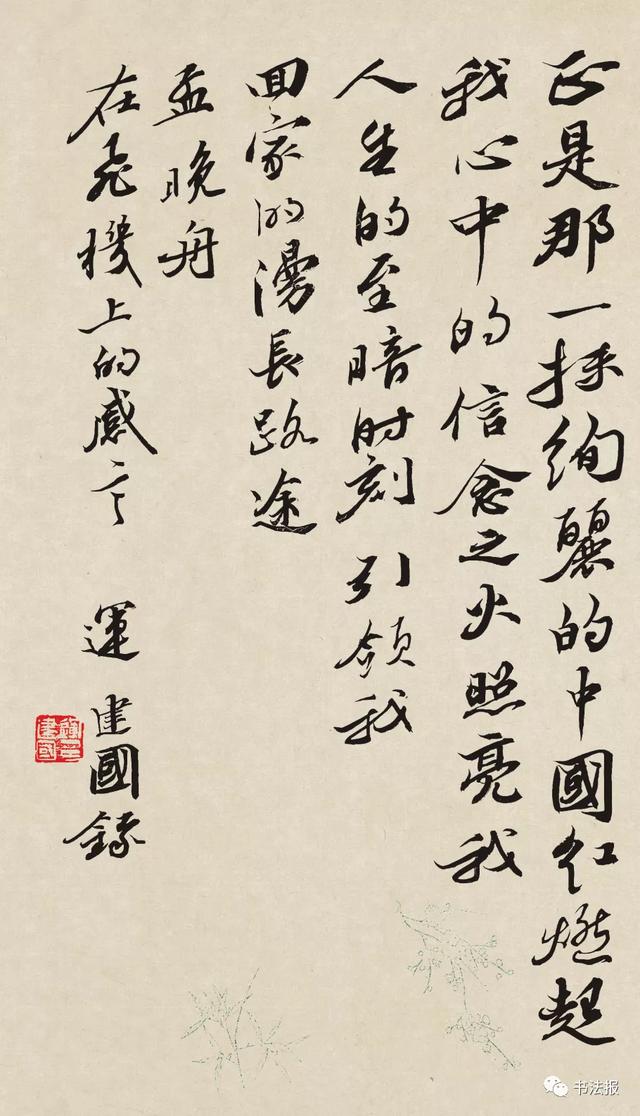 正是那一抹绚麗的中國红燃起
我心中的信念之火照亮我
人生的至暗时刻引领我
回家的漫長路途
孟晚舟
在飛機上的感言
運建國錄
书法报